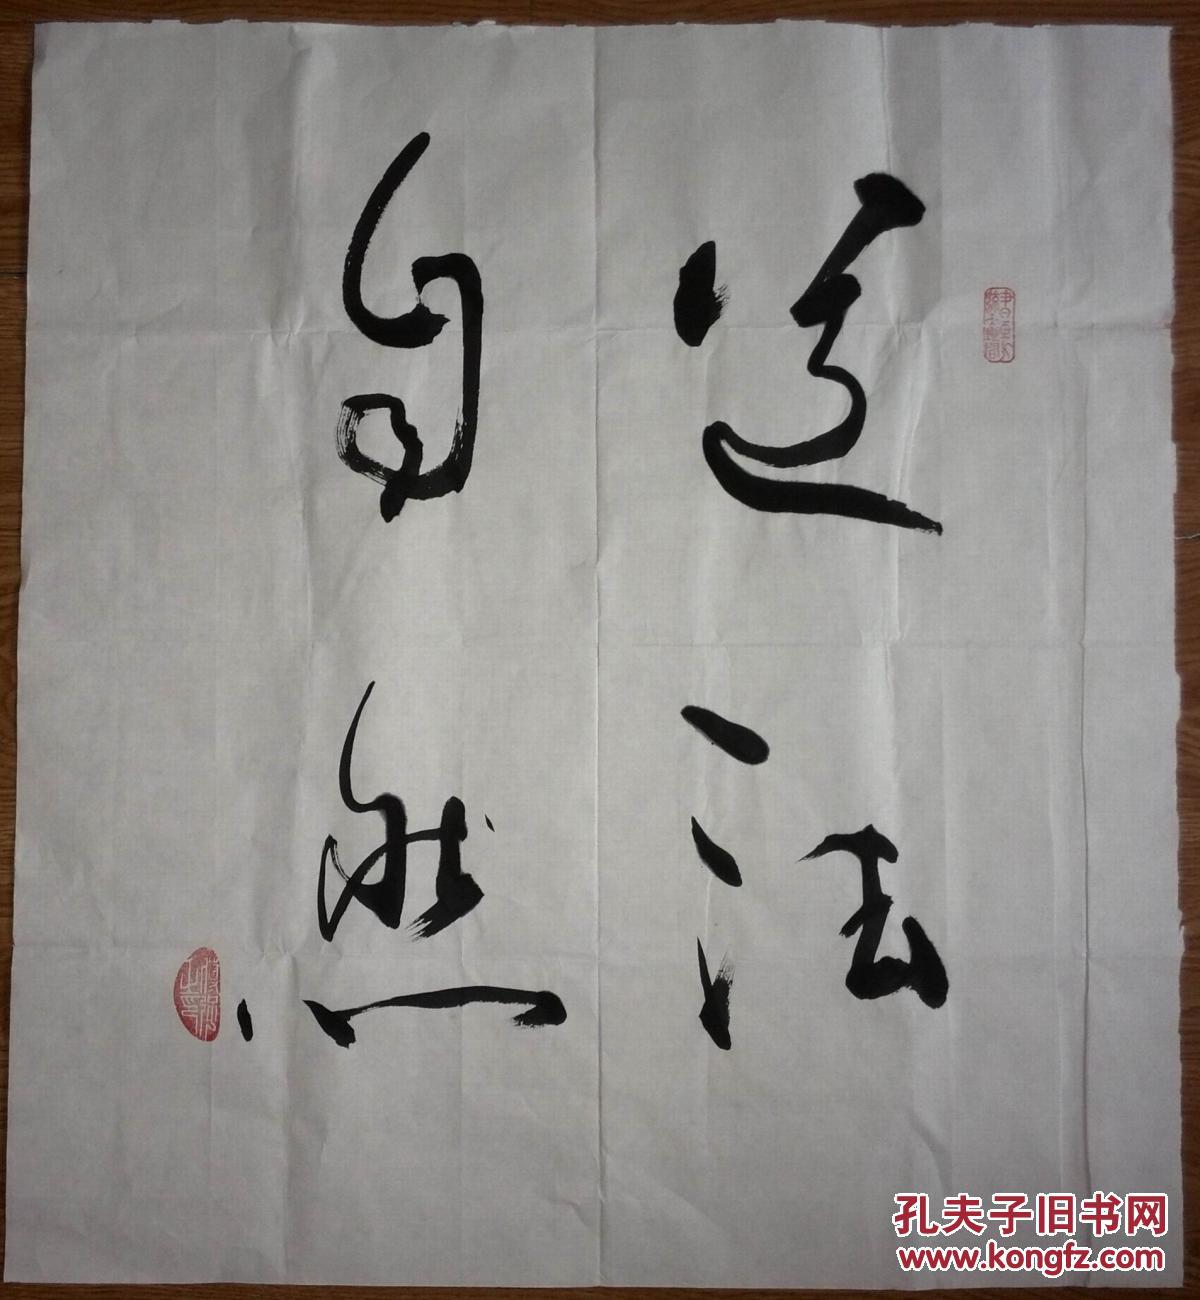 道法
自然
孔夫子旧书网
www.kongfz.com